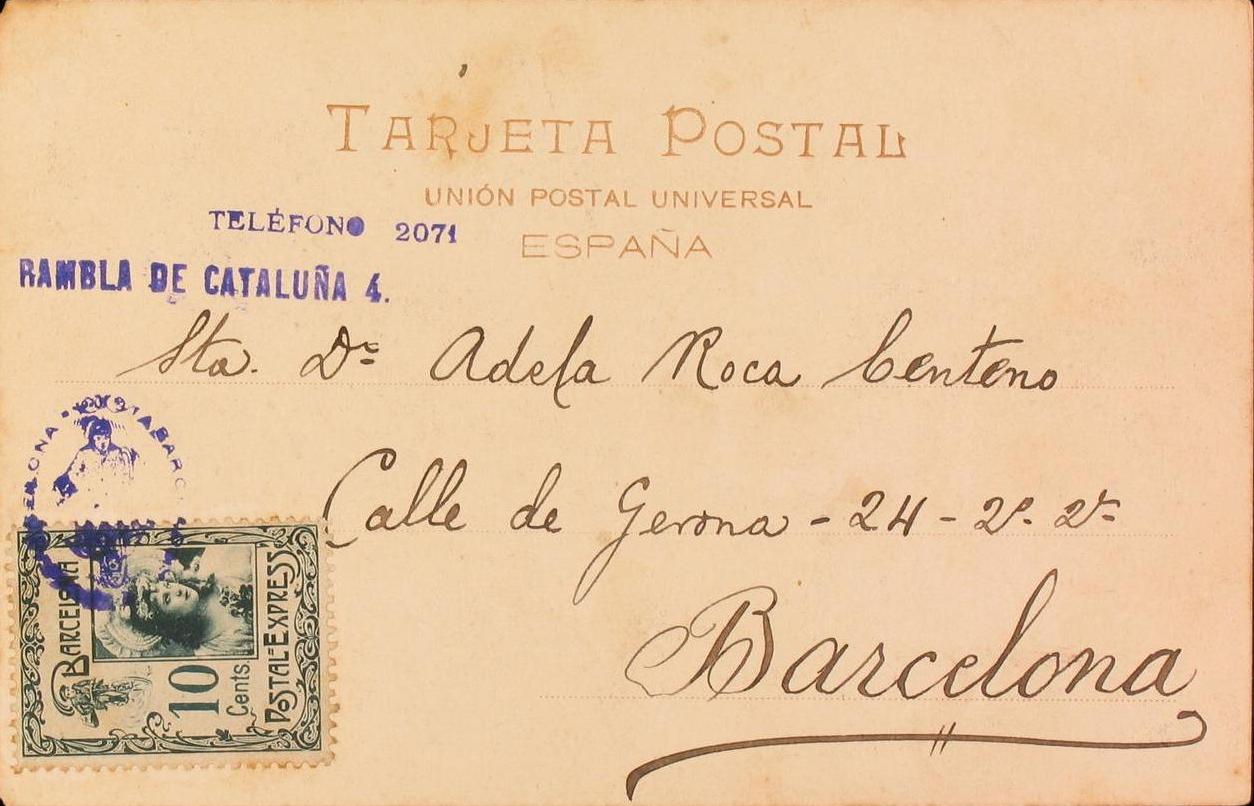 TARJETA POSTAL
UNIÓN POSTAL UNIVERSAL
ESPAÑA
TELÉFONO 2071
RAMBLA DE CATALUÑA 4.
Sta. Dª Adela Roca Centeno
Calle de Gerona - 24 - 2º. 2ª
Barcelona
BARCELONA
10
Cents.
POSTAL-EXPRESS